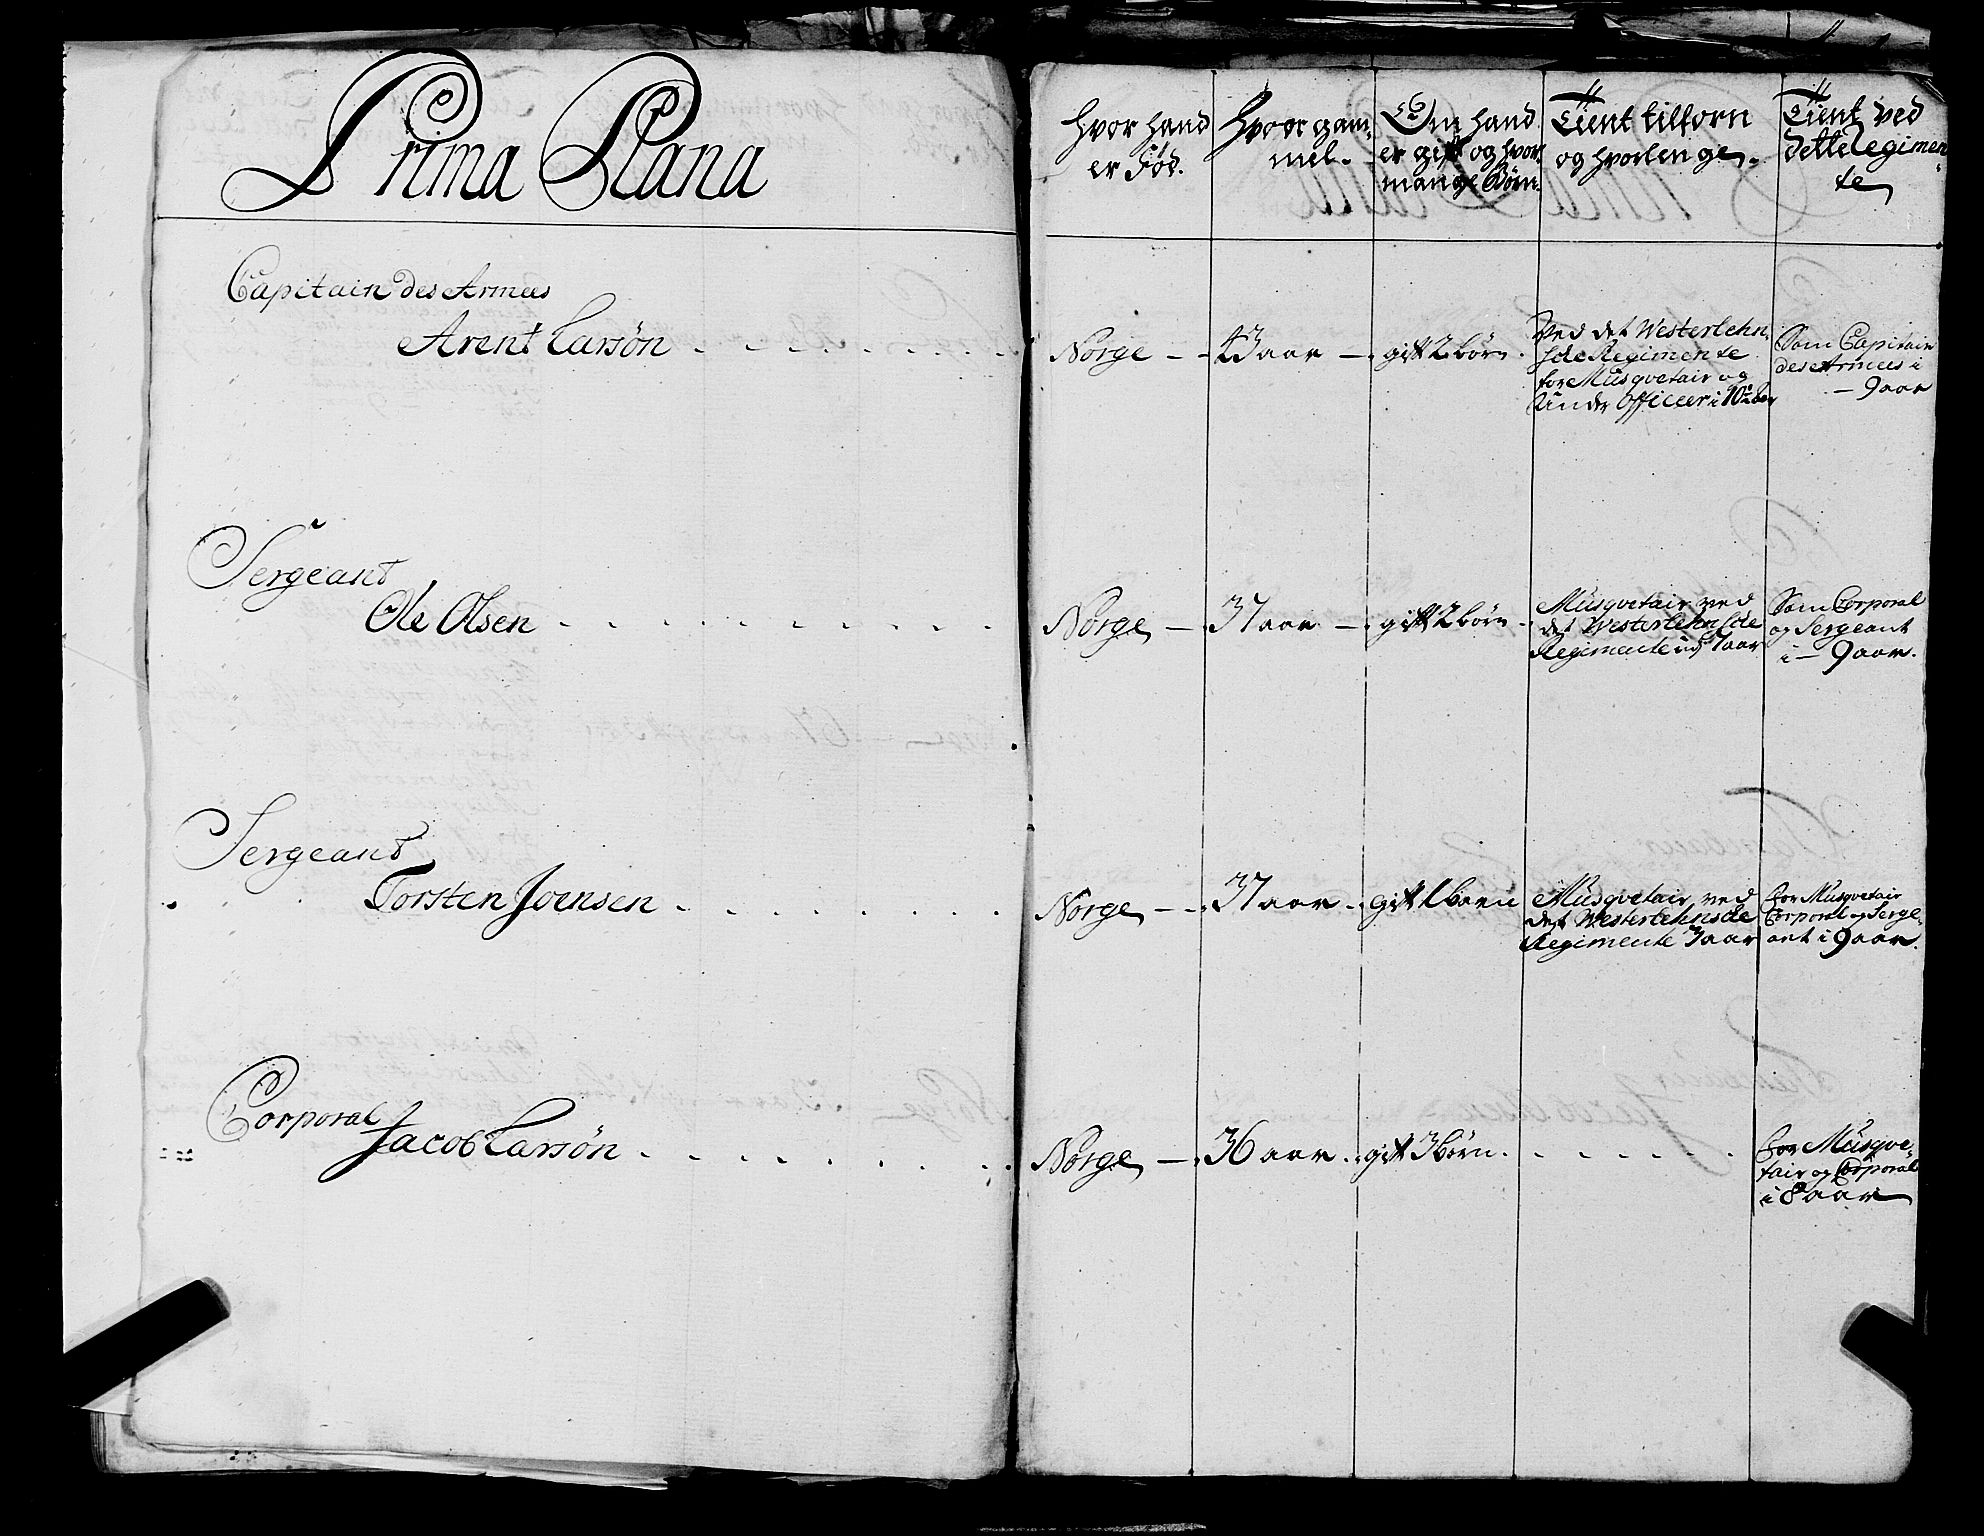 Prima Plana
Hvor hand
er Fød.
Hvor gam-
mel.
Om hand
er gift og hvor
mange Børn.
Tient tilforn
og hvorlenge.
Tient ved
dette Regimen-
te
Capitain des Armees
Arent Larsøn
Norge
43 aar
gift 2 børn.
Ved det Westerlehn-
ske Regimente
for Musqvetair og
Under Officeer i 10 aar
Som Capitain
des Armees i
9 aar
Sergeant
Ole Olsen
Norge
37 aar
gift 2 børn
Musqvetair ved
det Westerlehnske
Regimente 7 aar
Som Corporal
og Sergeant
i 9 aar.
Sergeant
Torsten Joensen
Norge
37 aar
gift 1 barn
Musqvetair ved
det Westerlehnske
Regimente 3 aar
for Musqvetair
Corporal og Serge-
ant i 9 aar.
Corporal
Jacob Larsøn
Norge
36 aar
gift 3 børn.
for Musqve-
tair og Corporal
i 8 aar